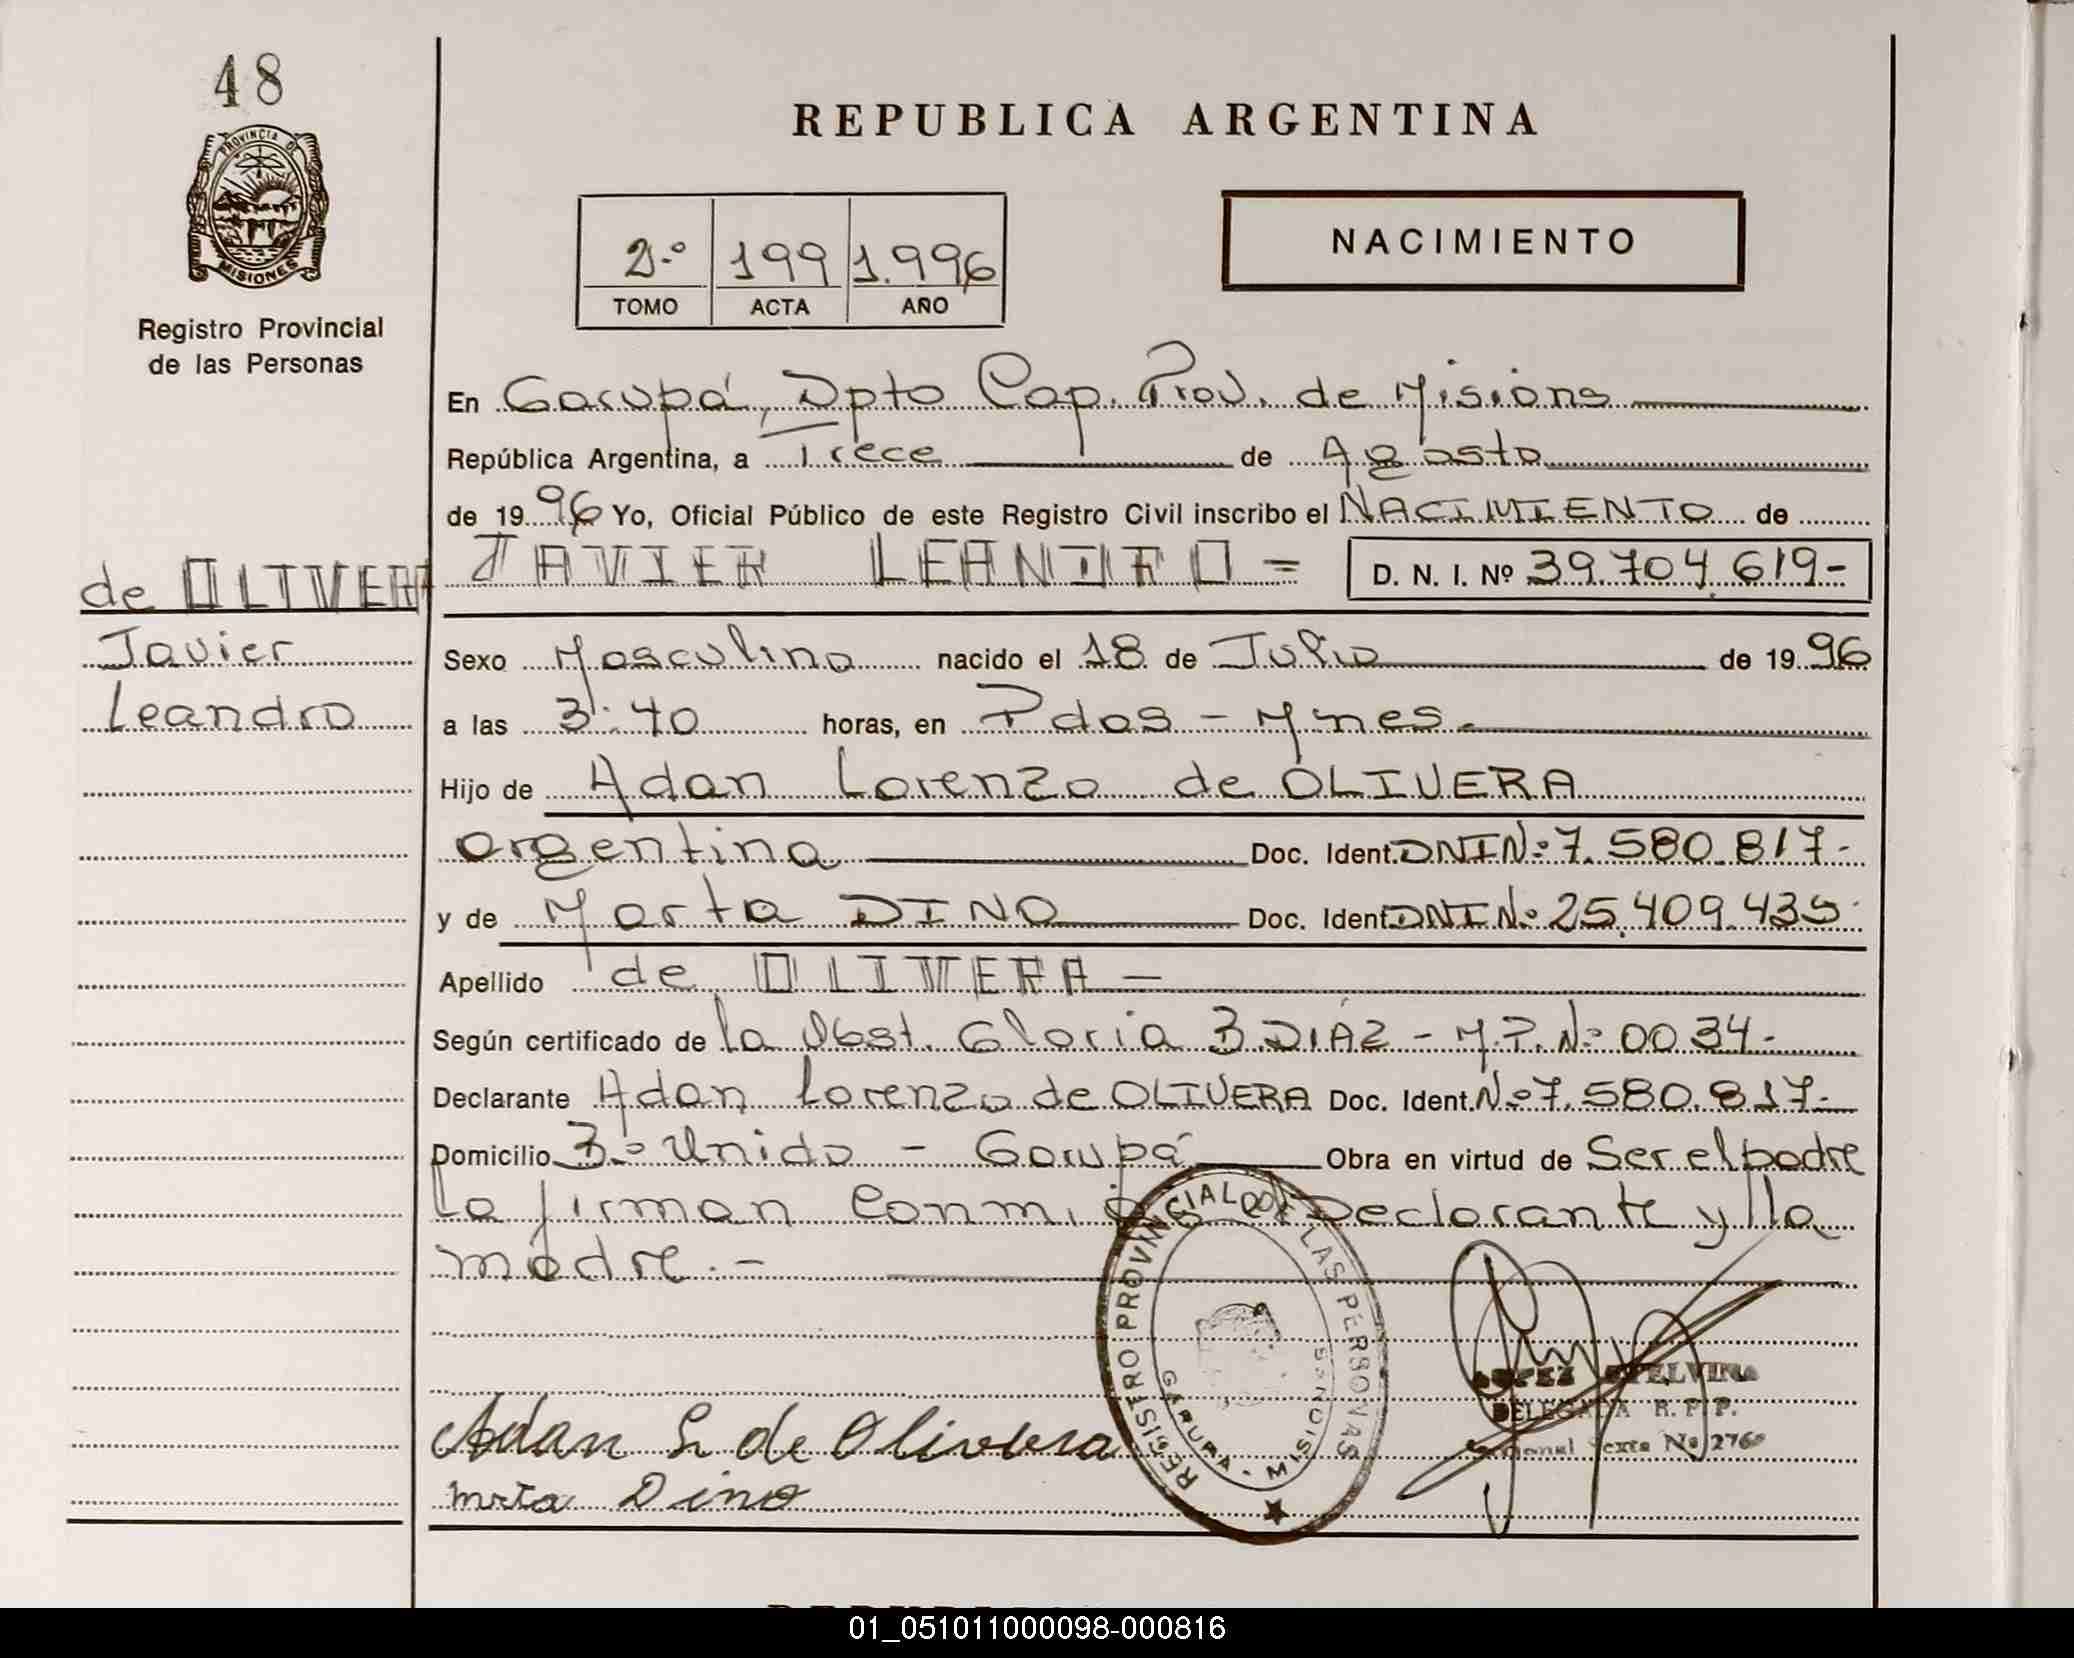 48
PROVINCIA DE
MISIONES
Registro Provincial
de las Personas
REPUBLICA ARGENTINA
2.º 199 1.996
TOMO ACTA AÑO
NACIMIENTO
En Garupá, Dpto Cap. Prov. de Misions
República Argentina, a Trece de Agosto
de 1996 Yo, Oficial Público de este Registro Civil inscribo el NACIMIENTO de
JAVIER LEANDRO = D. N. I. Nº 39.704.619-
de OLIVERA
Javier
Leandro
Sexo Masculino nacido el 18 de Julio de 1996
a las 3:40 horas, en Pdas - Mnes.
Hijo de Adan Lorenzo de OLIVERA
argentina Doc. Ident. DNI Nº 7.580.817-
y de Marta DINO Doc. Ident. DNI Nº 25.409.435
Apellido de OLIVERA -
Según certificado de la Obst. Gloria B. DIÁZ - M.P. Nº 0034-
Declarante Adan Lorenzo de OLIVERA Doc. Ident. Nº 7.580.817-
Domicilio Bº Unido - Garupá Obra en virtud de Ser el padre
La firman conmigo el Declarante y la
madre.-
REGISTRO PROVINCIAL DE LAS PERSONAS
GARUPA - MISIONES
LOPEZ ETELVINA
DELEGADA R. P. P.
Nº 276
Adan L de Olivera
Mrta Dino
01_051011000098-000816